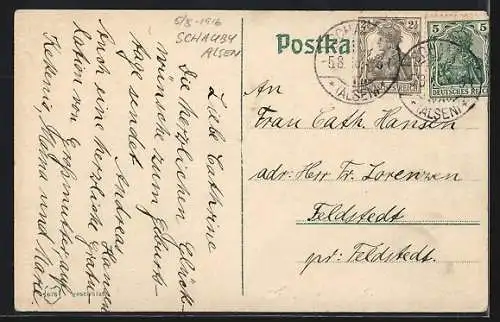 5/8-1916
SCHAUBY
ALSEN
Liebe Cathrine
Die herzlichen Glück-
wünsche zum Geburts-
tage sendet
Andreas Hansen
Auch eine herzliche Gratu
lation von Großmutter auf
Kekenis, Mama und Marie
Postka
5.8.
(ALSEN)
2½
REICH
5
DEUTSCHES REIC
(ALSEN)
An
Frau Cath. Hansen
adr: Herr Fr. Lorenzen
Feldstedt
pr: Feldstedt.